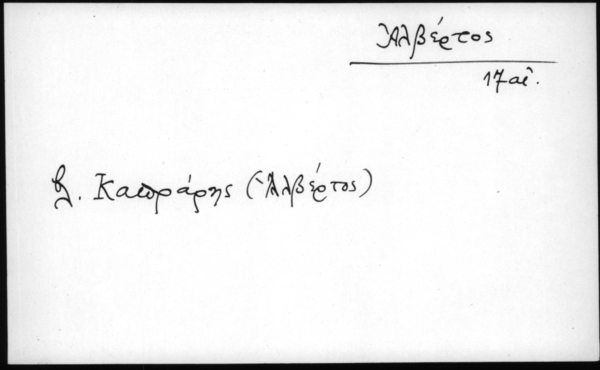 Ἀλβέρτος
17 αἰ.
βλ. Καπράρης (Ἀλβέρτος)